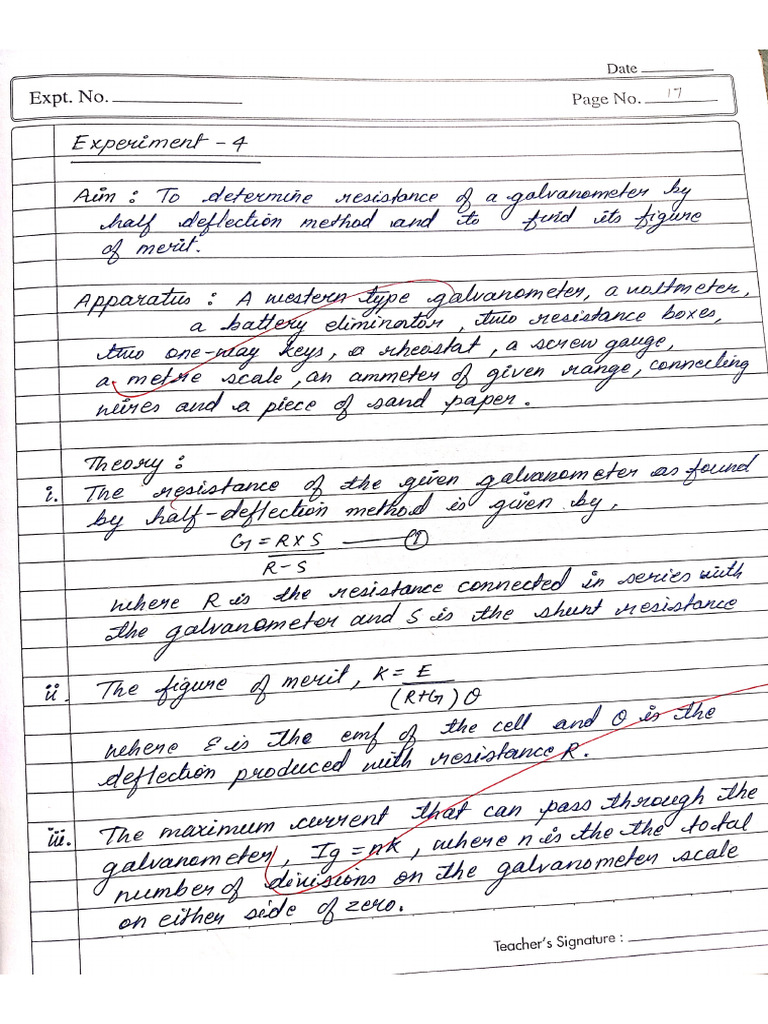 Date
Expt. No.
Page No. 17
Experiment - 4
Aim : To determine resistance of a galvanometer by
half deflection method and to find its figure
of merit.
Apparatus : A western type galvanometer, a voltmeter,
a battery eliminator, two resistance boxes,
two one-way keys, a rheostat, a screw gauge,
a metre scale, an ammeter of given range, connecting
wires and a piece of sand paper.
Theory :
i. The resistance of the given galvanometer as found
by half-deflection method is given by,
G = R x S / R - S — (1)
where R is the resistance connected in series with
the galvanometer and S is the shunt resistance
ii. The figure of merit, K = E / (R+G) θ
where E is the emf of the cell and θ is the
deflection produced with resistance R.
iii. The maximum current that can pass through the
galvanometer, Ig = nk, where n is the the total
number of divisions on the galvanometer scale
on either side of zero.
Teacher's Signature :